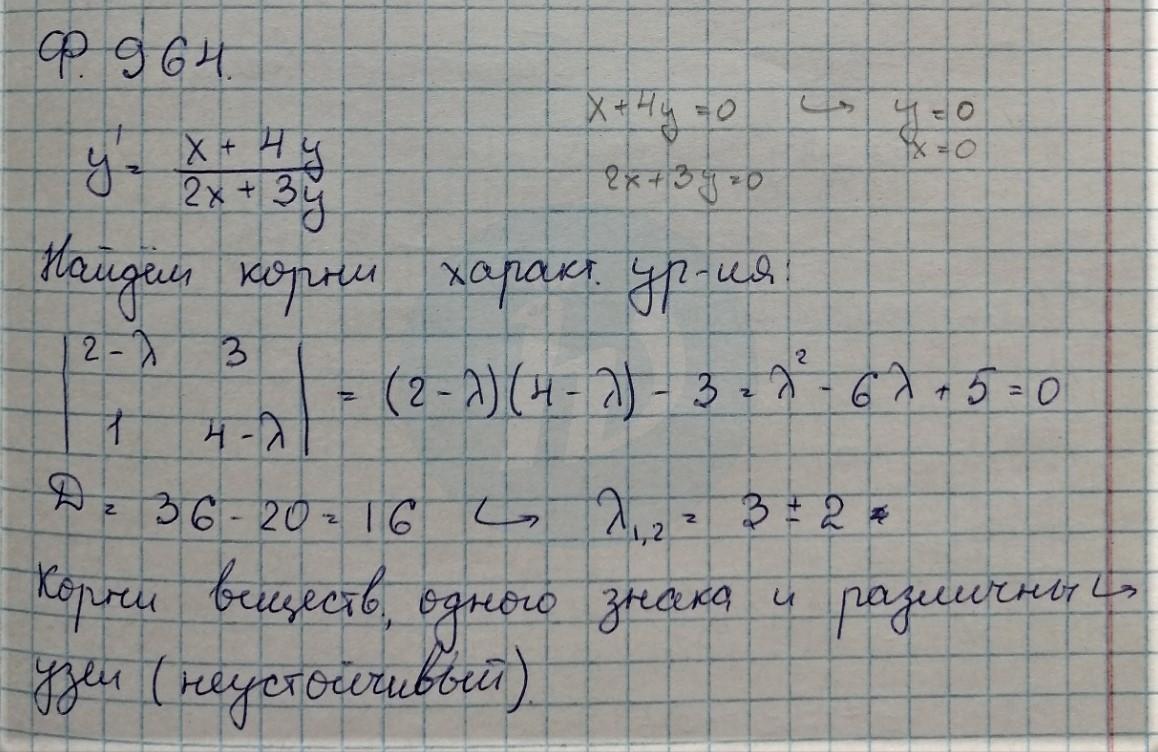 Ф. 964.
x+4y=0 ↪ y=0
x=0
y' = \frac{x+4y}{2x+3y}
2x+3y=0
Найдём корни характ. ур-ия:
\begin{vmatrix} 2-λ & 3 \\ 1 & 4-λ \end{vmatrix} = (2-λ)(4-λ) - 3 = λ² - 6λ + 5 = 0
Д = 36 - 20 = 16 ↪ λ_{1,2} = 3 ± 2
Корни веществ, одного знака и различны ↪
узел (неустойчивый).